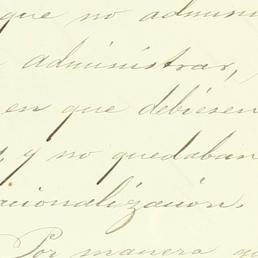 que no admini
administrar,
en que debiesen
y no quedaban
acionalización.
Por manera que